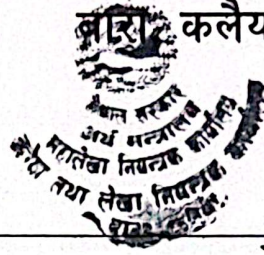 बारा, कलैय
नेपाल सरकार
अर्थ मन्त्रालय
महालेखा नियन्त्रक कार्यालय
कोष तथा लेखा नियन्त्रक